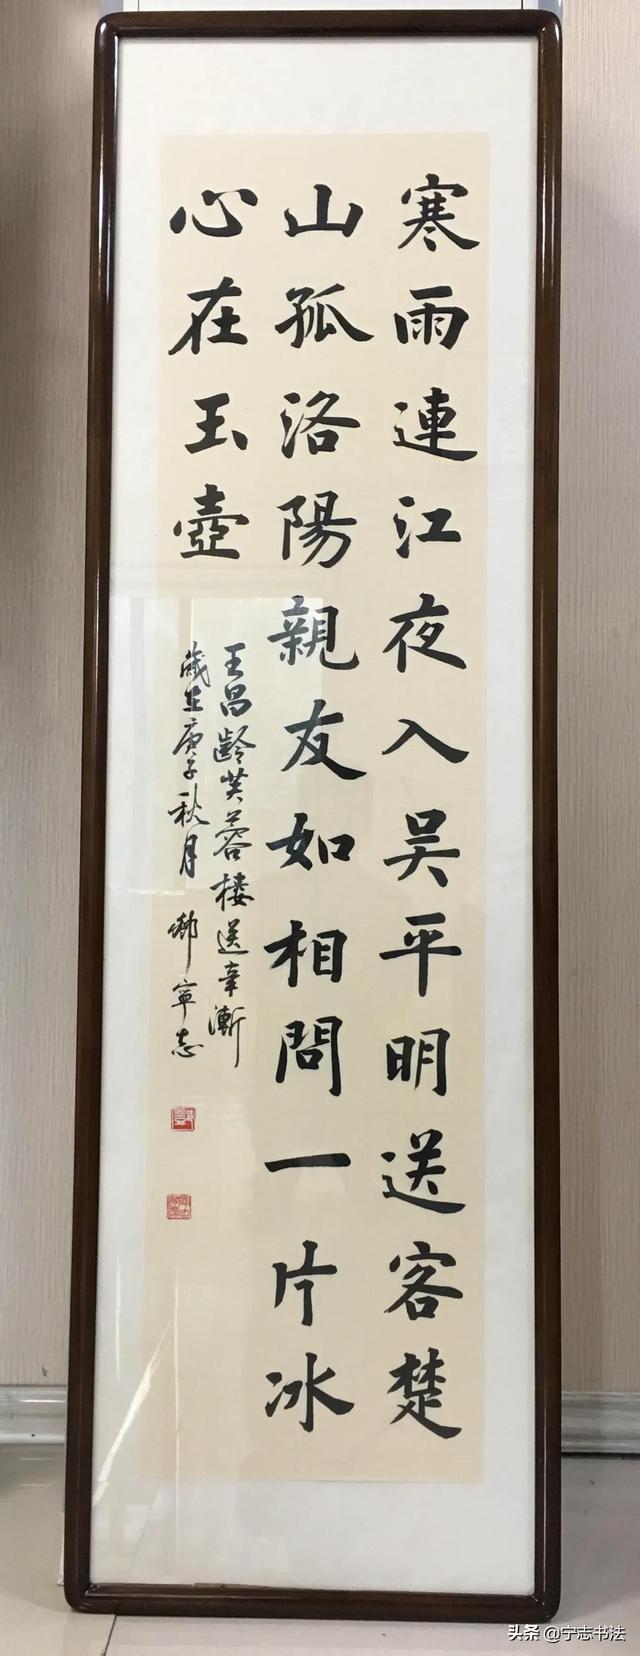 寒雨連江夜入吴平明送客楚
山孤洛陽親友如相問一片冰
心在玉壺
王昌齡芙蓉樓送辛漸
歲在庚子秋月 鄉寧志
头条 @宁志书法